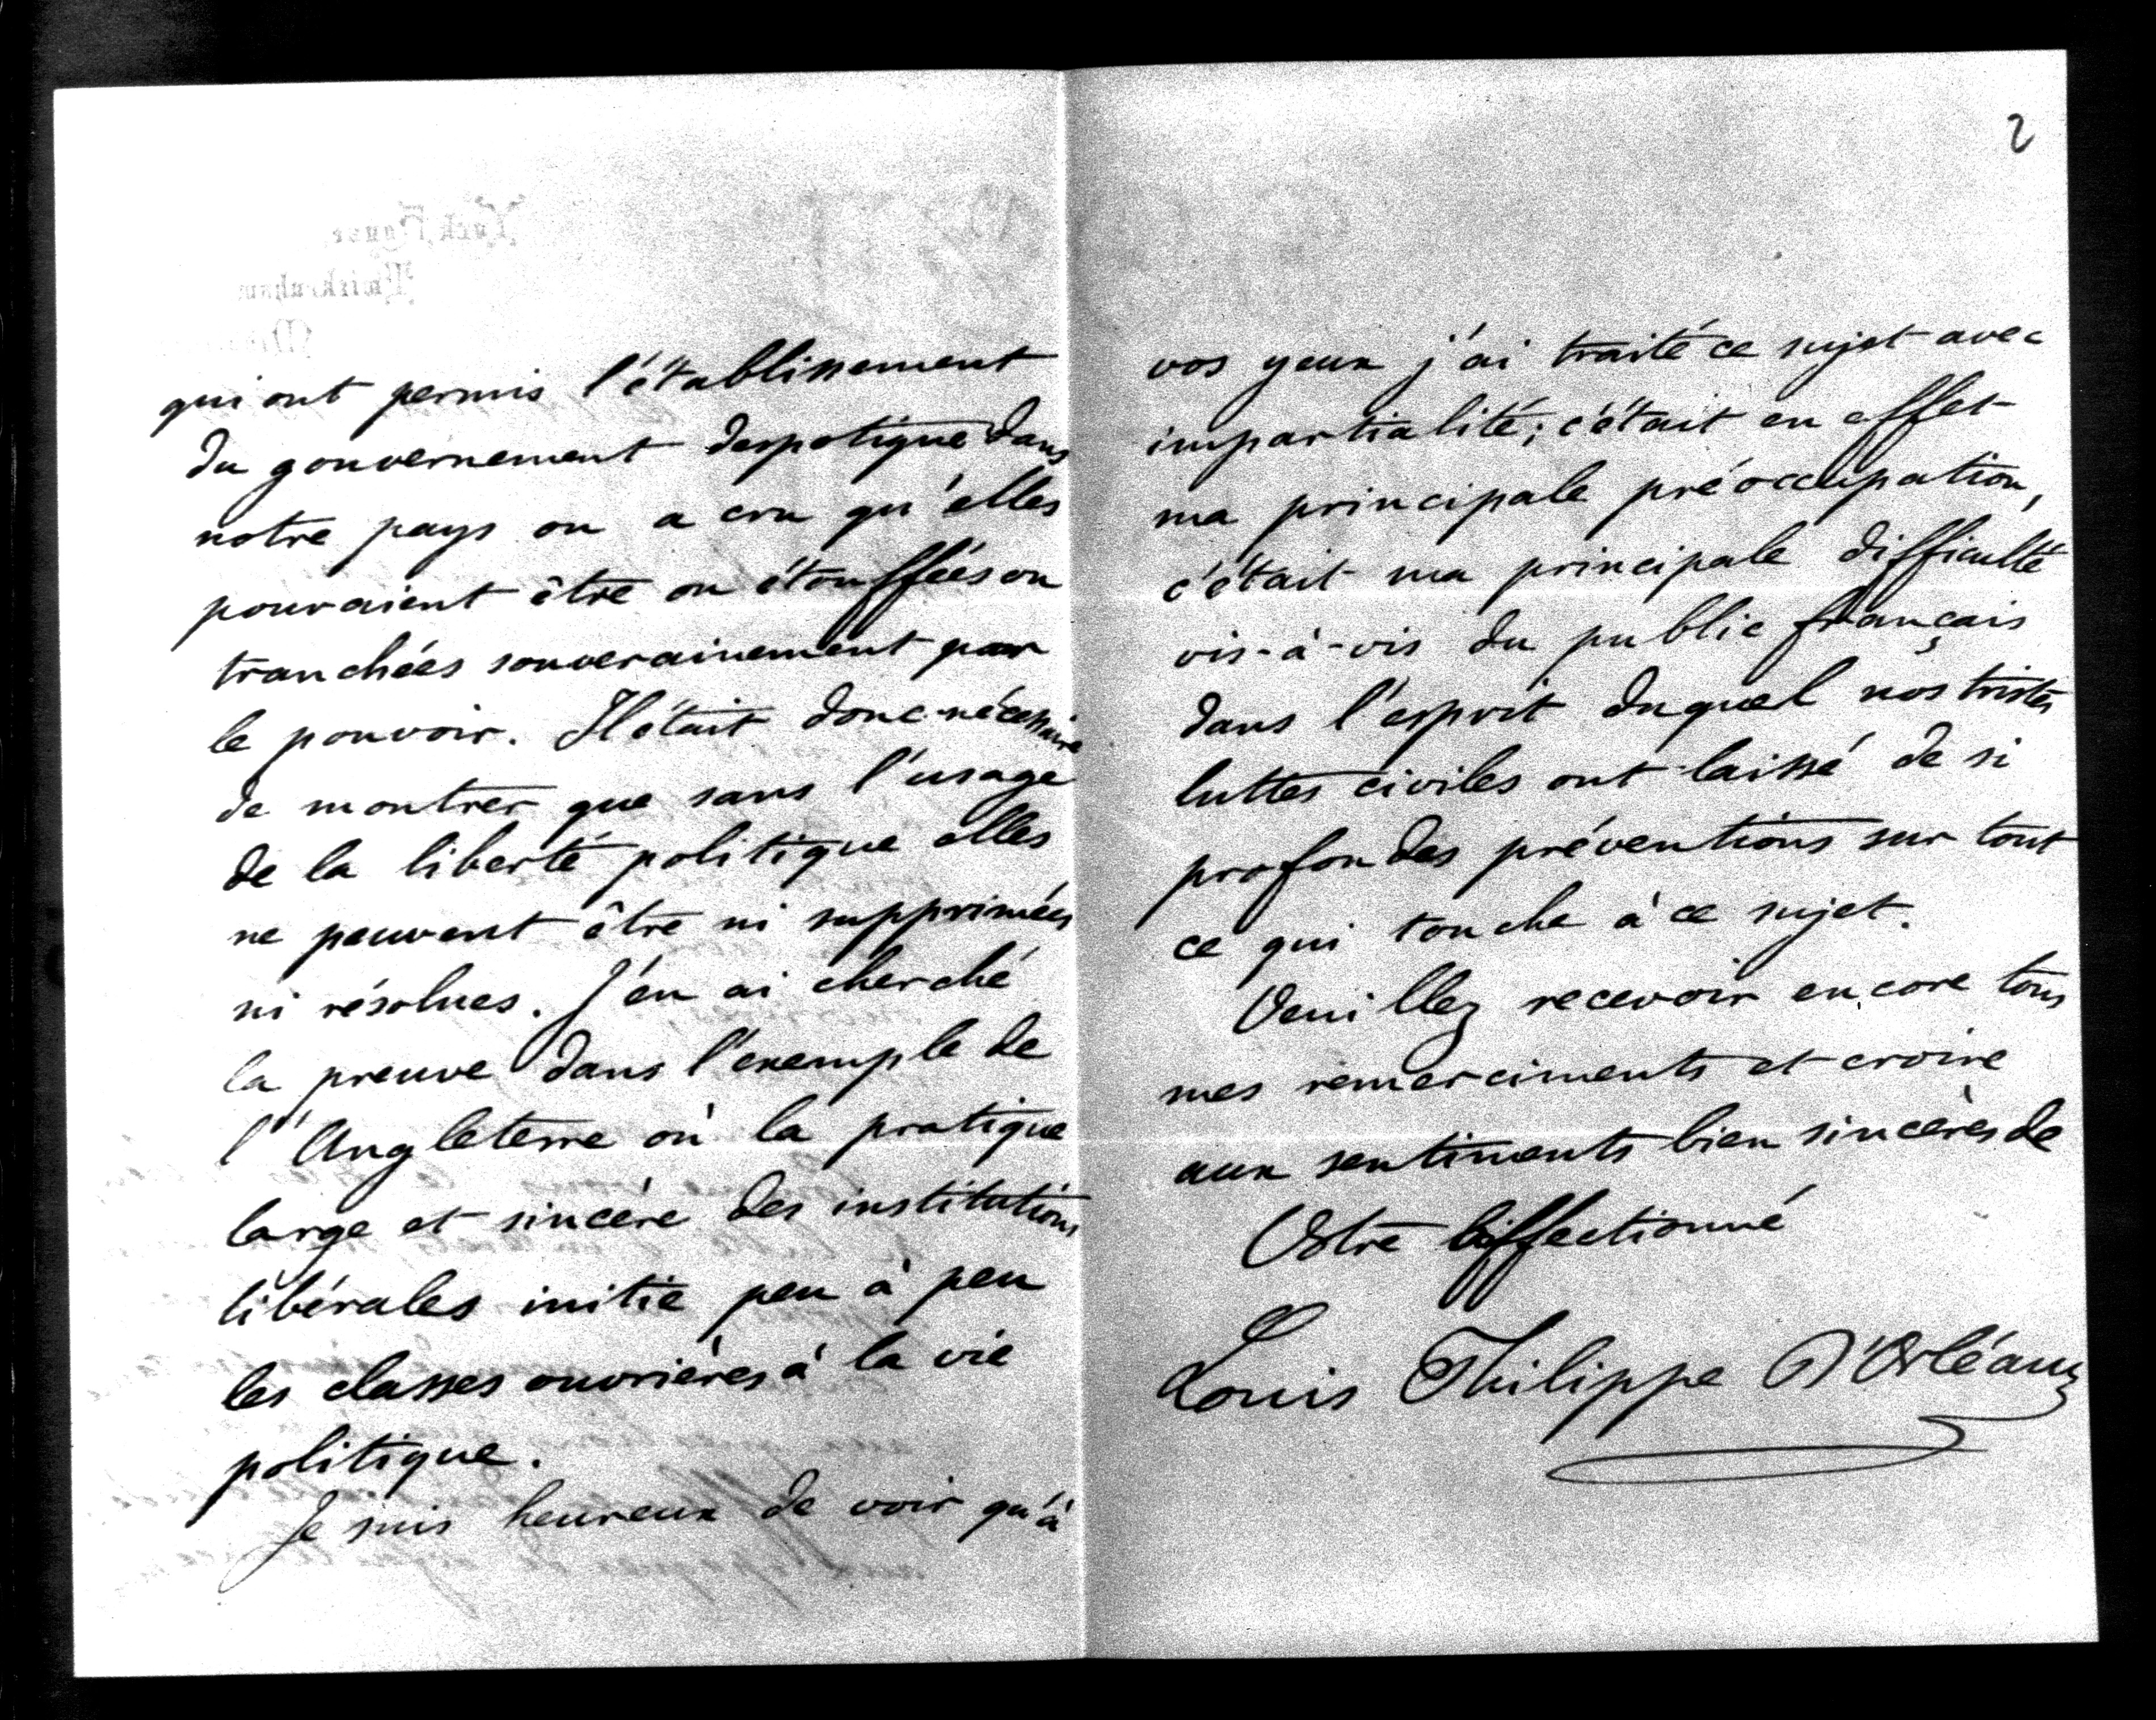 qui ont permis l'établissement
du gouvernement despotique dans
notre pays on a cru qu'elles
pouvaient être ou étouffées ou
tranchées souverainement par
le pouvoir. Il était donc nécessaire
de montrer que sans l'usage
de la liberté politique elles
ne peuvent être ni supprimées
ni résolues. J'en ai cherché
la preuve dans l'exemple de
l'Angleterre où la pratique
large et sincère des institutions
libérales initie peu à peu
les classes ouvrières à la vie
politique.
Je suis heureux de voir qu'à
2
vos yeux j'ai traité ce sujet avec
impartialité; c'était en effet
ma principale préoccupation,
c'était ma principale difficulté
vis-à-vis du public français
dans l'esprit duquel nos tristes
luttes civiles ont laissé de si
profondes préventions sur tout
ce qui touche à ce sujet.
Veuillez recevoir encore tous
mes remerciments et croire
aux sentiments bien sincères de
Votre affectionné
Louis Philippe d'Orléans